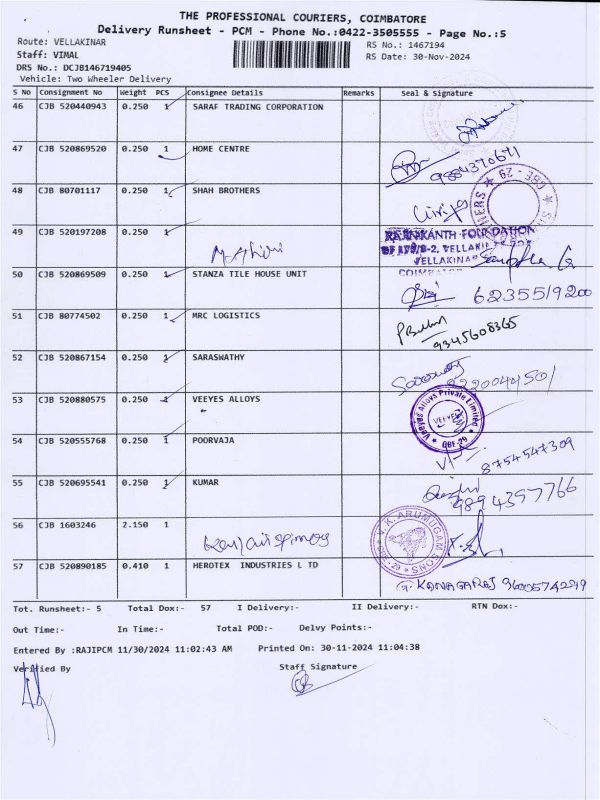 THE PROFESSIONAL COURIERS, COIMBATORE
Delivery Runsheet - PCM - Phone No.:0422-3505555 - Page No.:5
Route: VELLAKINAR
RS No.: 1467194
Staff: VIMAL
RS Date: 30-Nov-2024
DRS No.: DCJB146719405
Vehicle: Two Wheeler Delivery
S No Consignment No Weight PCS Consignee Details Remarks Seal & Signature
46 CJB 520440943 0.250 1 SARAF TRADING CORPORATION
47 CJB 520869520 0.250 1 HOME CENTRE
9884370671
48 CJB 80701117 0.250 1 SHAH BROTHERS
49 CJB 520197208 0.250 1
FOUNDATION
VELLAKINAR
COIMBATORE
50 CJB 520869509 0.250 1 STANZA TILE HOUSE UNIT
6235519200
51 CJB 80774502 0.250 1 MRC LOGISTICS
9345608365
52 CJB 520867154 0.250 1 SARASWATHY
53 CJB 520880575 0.250 1 VEEYES ALLOYS
Veeyes Alloys Private Limited
VEEYES
CBE-29
54 CJB 520555768 0.250 1 POORVAJA
8754547309
55 CJB 520695541 0.250 1 KUMAR
9894397766
56 CJB 1603246 2.150 1
V.K. ARUMUGAM SONS
CBE-29
57 CJB 520890185 0.410 1 HEROTEX INDUSTRIES L TD
KANAGARAJ 9600574299
Tot. Runsheet:- 5 Total Dox:- 57 I Delivery:- II Delivery:- RTN Dox:-
Out Time:- In Time:- Total POD:- Delvy Points:-
Entered By :RAJIPCM 11/30/2024 11:02:43 AM Printed On: 30-11-2024 11:04:38
Verified By Staff Signature